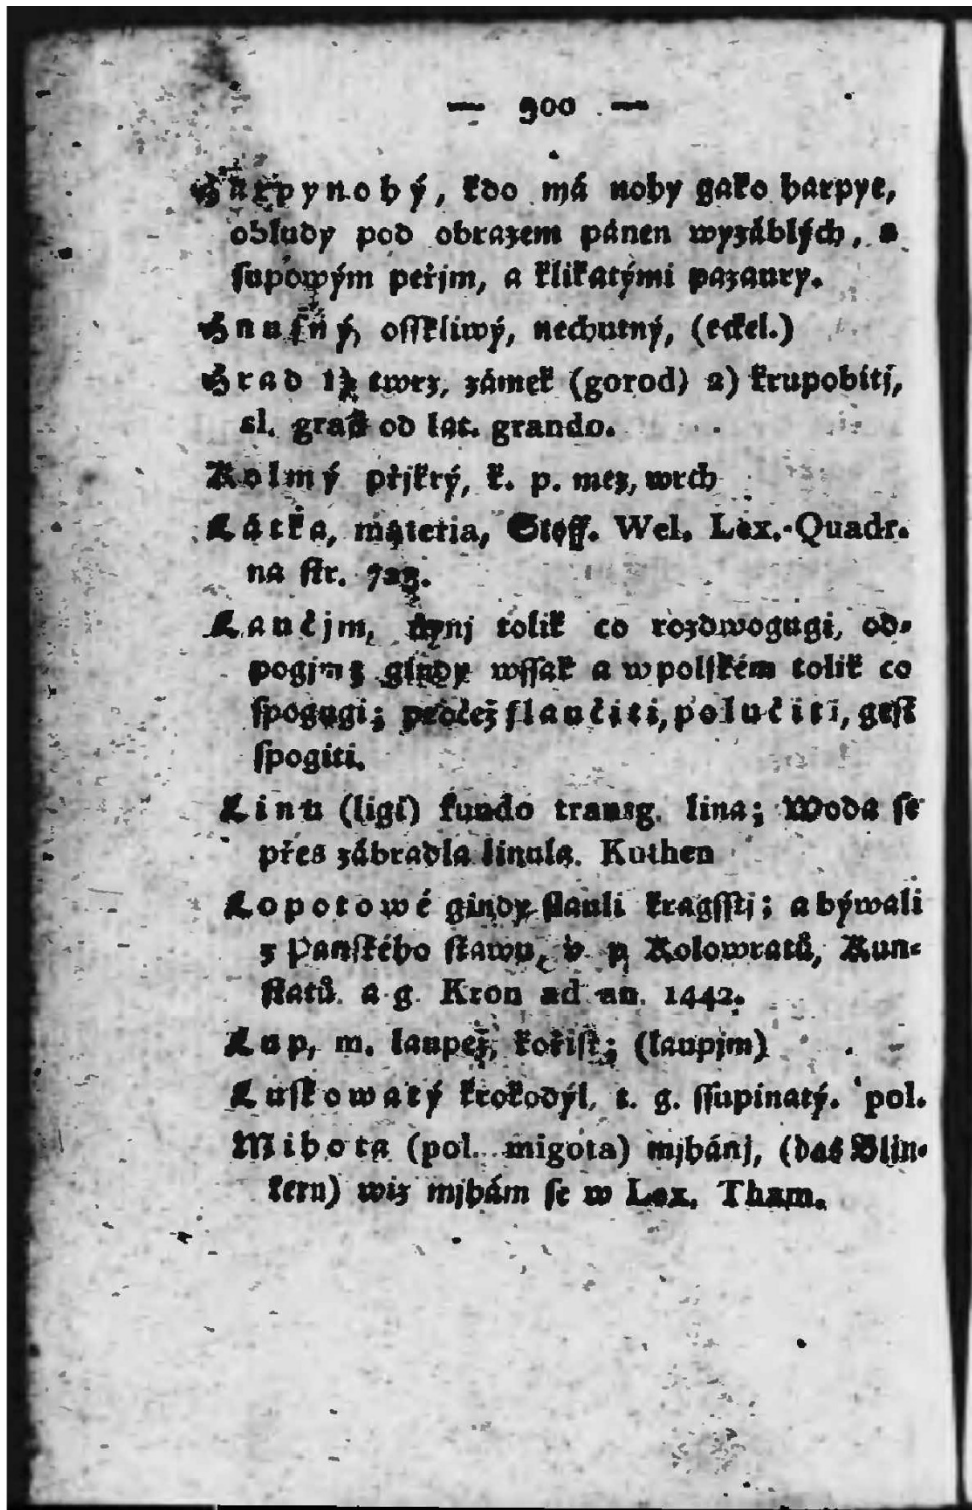 — 900 —
Harpynohý, kdo má nohy gako harpye,
obludy pod obrazem pánen wyzáblých, s
supowým peřjm, a klikatými pazaury.
Hnusný, ossklíwý, nechutný, (eckel.)
Hrad 1) twrz, zámek (gorod) 2) krupobití,
sl. grad od lat. grando.
Kolmý přjkrý, k. p. mez, wrch
Látka, materia, Stoff. Wel. Lex. Quadr.
na str. 723.
Laučjm, nynj tolik co rozdwogugi, od-
pogjm; gindy wssak a w polském tolik co
spogugi; pročež slaučiti, polučiti, gest
spogiti.
Linu (ligi) fundo transg. lina; Woda se
přes zábradla linula. Kuthen
Lopotowé gindy slauli kragsstj; a býwali
z Panského stawu, k. p. Kolowratů, Kun-
statů. a g. Kron ad an. 1442.
Lup, m. laupež, kořist; (laupjm)
Luskowatý krokodýl, t. g. ssupinatý. pol.
Mihota (pol. migota) mjhánj, (das Blin-
kern) wiz mjhám se w Lex. Tham.